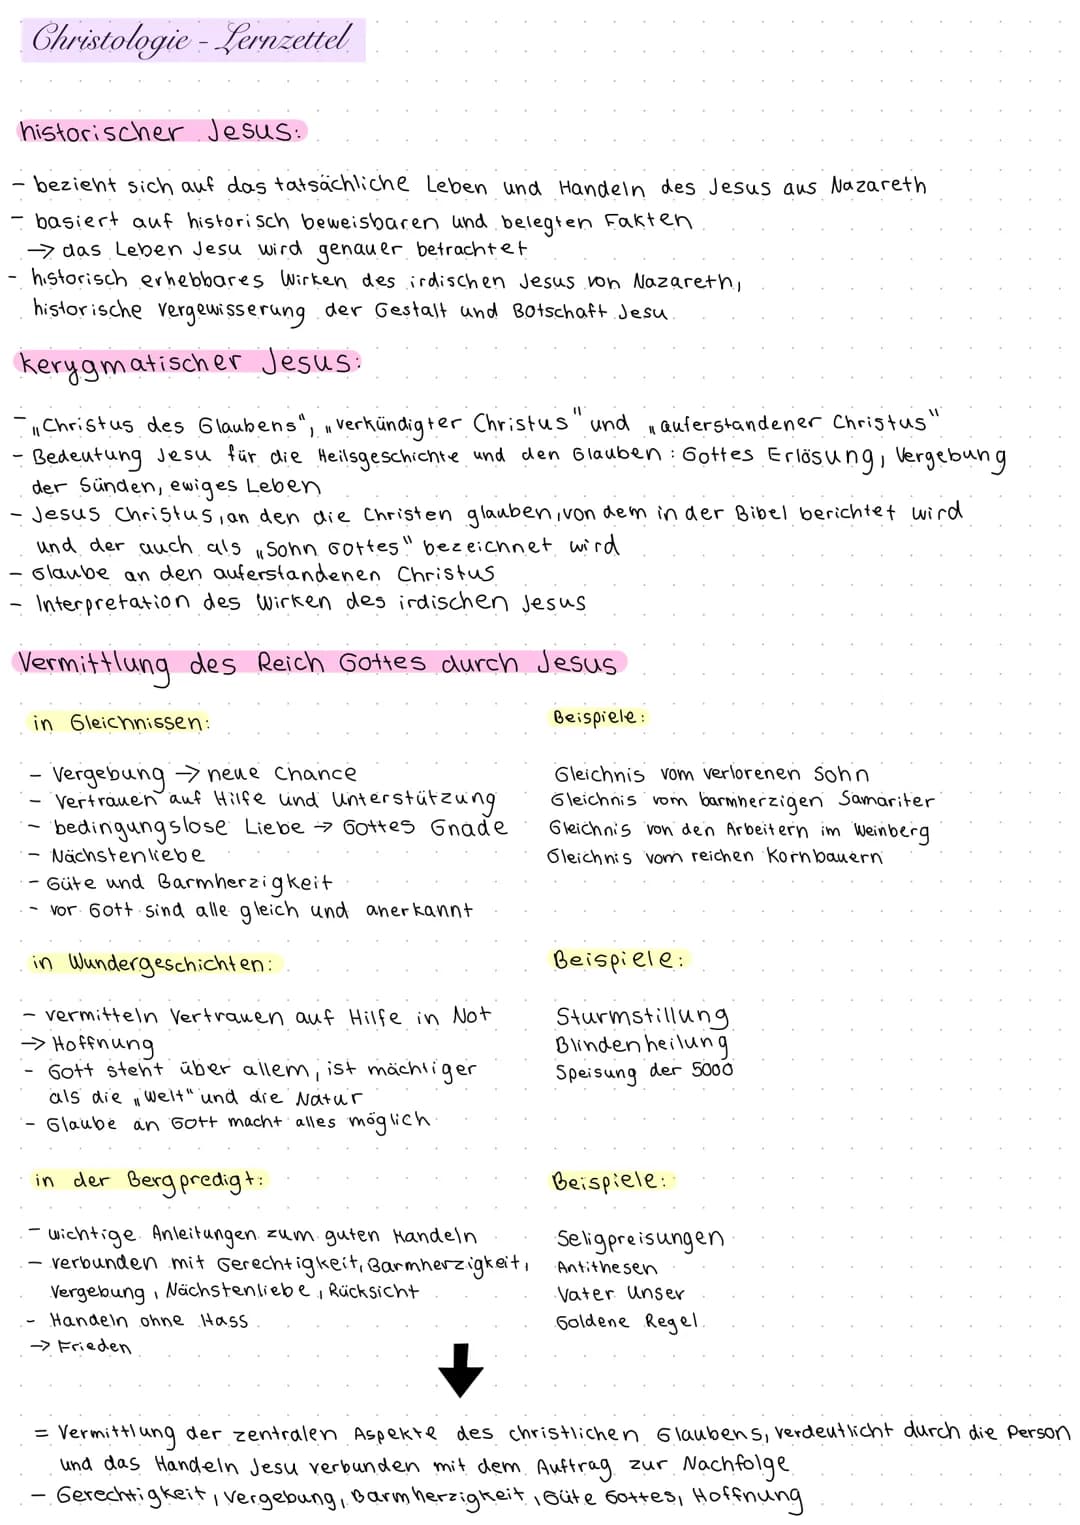 Christologie - Lernzettel
historischer Jesus:
- bezieht sich auf das tatsächliche Leben und Handeln des Jesus aus Nazareth
- basiert auf historisch beweisbaren und belegten Fakten
→ das Leben Jesu wird genauer betrachtet
- historisch erhebbares Wirken des irdischen Jesus von Nazareth,
historische Vergewisserung der Gestalt und Botschaft Jesu
kerygmatischer Jesus:
- „Christus des Glaubens", „verkündigter Christus" und „auferstandener Christus"
- Bedeutung Jesu für die Heilsgeschichte und den Glauben: Gottes Erlösung, Vergebung
der Sünden, ewiges Leben
- Jesus Christus, an den die Christen glauben, von dem in der Bibel berichtet wird
und der auch als „Sohn Gottes" bezeichnet wird
- Glaube an den auferstandenen Christus
- Interpretation des Wirken des irdischen Jesus
Vermittlung des Reich Gottes durch Jesus
in Gleichnissen:
- Vergebung → neue Chance
- Vertrauen auf Hilfe und Unterstützung
- bedingungslose Liebe → Gottes Gnade
- Nächstenliebe
- Güte und Barmherzigkeit
- vor Gott sind alle gleich und anerkannt
Beispiele:
Gleichnis vom verlorenen Sohn
Gleichnis vom barmherzigen Samariter
Gleichnis von den Arbeitern im Weinberg
Gleichnis vom reichen Kornbauern
in Wundergeschichten:
- vermitteln Vertrauen auf Hilfe in Not
→ Hoffnung
- Gott steht über allem, ist mächtiger
als die „Welt" und die Natur
- Glaube an Gott macht alles möglich
Beispiele:
Sturmstillung
Blindenheilung
Speisung der 5000
in der Bergpredigt:
- wichtige Anleitungen zum guten Handeln
- verbunden mit Gerechtigkeit, Barmherzigkeit,
Vergebung, Nächstenliebe, Rücksicht
- Handeln ohne Hass
→ Frieden
Beispiele:
Seligpreisungen
Antithesen
Vater Unser
Goldene Regel
= Vermittlung der zentralen Aspekte des christlichen Glaubens, verdeutlicht durch die Person
und das Handeln Jesu verbunden mit dem Auftrag zur Nachfolge
- Gerechtigkeit, Vergebung, Barmherzigkeit, Güte Gottes, Hoffnung